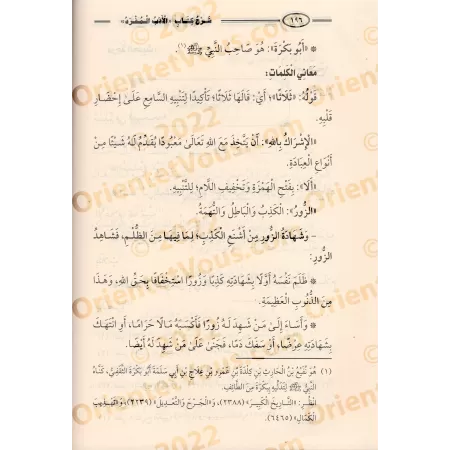 ١٩٦
شرح كتاب «الأدب المفرد»
* «أَبُو بَكْرَةَ»: هُوَ صَاحِبُ النَّبِيِّ ﷺ(١).
مَعَانِي الكَلِمَات:
- قَوْلُهُ: «ثَلَاثًا»؛ أَيْ: قَالَهَا ثَلَاثًا؛ تَأْكِيدًا لِتَنْبِيهِ السَّامِعِ عَلَىٰ إِحْضَارِ
قَلْبِهِ.
«الْإِشْرَاكُ بِاللهِ»: أَنْ يَتَّخِذَ مَعَ اللهِ تَعَالَىٰ مَعْبُودًا يُقَدِّمُ لَهُ شَيْئًا مِنْ
أَنْوَاعِ الْعِبَادَةِ.
«أَلَا»: بِفَتْحِ الْهَمْزَةِ وَتَخْفِيفِ اللَّامِ؛ لِلتَّنْبِيهِ.
«الزُّورُ»: الْكَذِبُ وَالْبَاطِلُ وَالتُّهَمَةُ.
- وَشَهَادَةُ الزُّورِ مِنْ أَشْنَعِ الْكَذِبِ؛ لِمَا فِيهَا مِنَ الظُّلْمِ، فَشَاهِدُ
الزُّورِ:
* ظَلَمَ نَفْسَهُ أَوَّلًا بِشَهَادَتِهِ كَذِبًا وَزُورًا اسْتِخْفَافًا بِحَقِّ اللهِ، وَهَذَا
مِنَ الذُّنُوبِ الْعَظِيمَةِ.
* وَأَسَاءَ إِلَىٰ مَنْ شَهِدَ لَهُ زُورًا فَأَكْسَبَهُ مَالًا حَرَامًا، أَوِ انْتَهَكَ
بِشَهَادَتِهِ عِرْضًا، أَوْ سَفَكَ دَمًا، فَجَنَىٰ عَلَىٰ مَنْ شَهِدَ لَهُ أَيْضًا.
(١) هُوَ نُفَيْعُ بْنُ الْحَارِثِ بْنِ كَلَدَةَ بْنِ عَمْرِو بْنِ عِلَاجِ بْنِ أَبِي سَلَمَةَ أَبُو بَكْرَةَ الثَّقَفِيُّ، كَنَّاهُ
النَّبِيُّ ﷺ لِتَدَلِّيهِ بِبَكْرَةٍ مِنَ الطَّائِفِ.
انْظُرْ: «التَّارِيخَ الْكَبِيرَ» (٢٣٨٨)، وَ«الْجَرْحَ وَالتَّعْدِيلَ» (٢٢٣٩)، وَ«تَهْذِيبَ
الْكَمَالِ» (٦٤٦٥).
© OrientetVous.com 2022